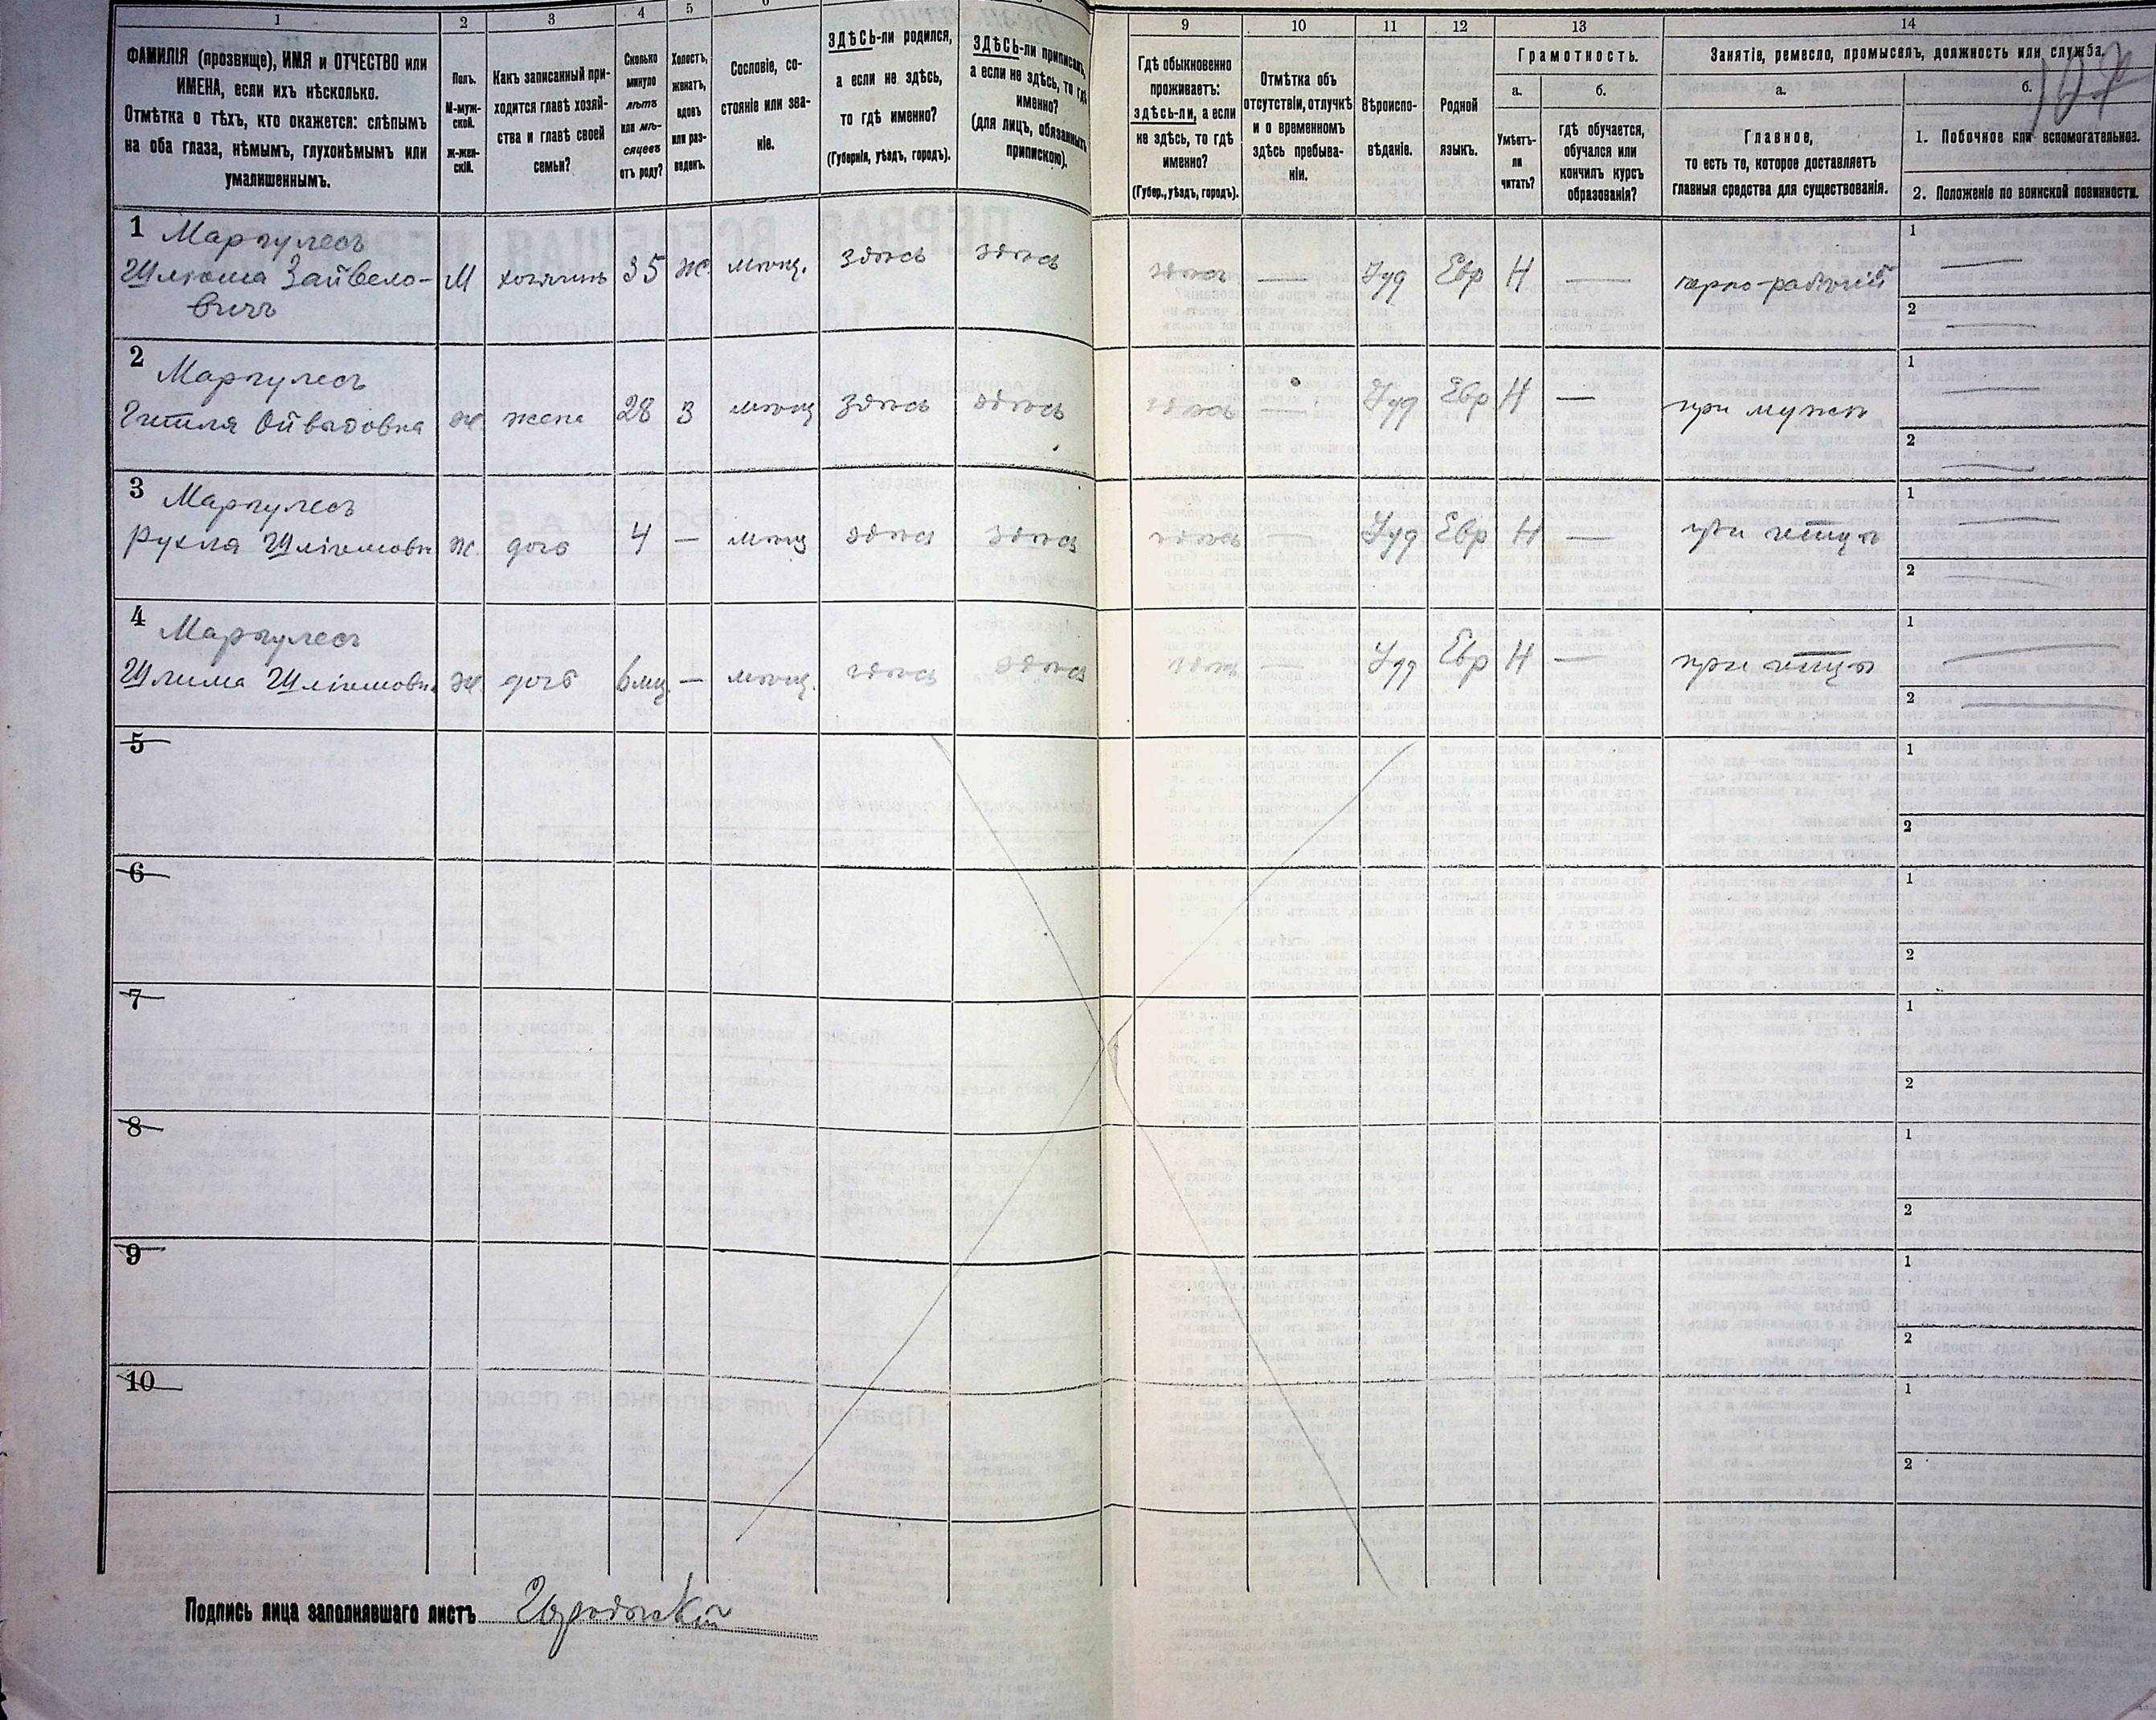 1 2 3 4 5 6
ФАМИЛІЯ (прозвище), ИМЯ и ОТЧЕСТВО или
ИМЕНА, если ихъ нѣсколько.
Отмѣтка о тѣхъ, кто окажется: слѣпымъ
на оба глаза, нѣмымъ, глухонѣмымъ или
умалишеннымъ.
Полъ.
М-муж-
ской.
Ж-жен-
скій.
Какъ записанный при-
ходится главѣ хозяй-
ства и главѣ своей
семьи?
Сколько
минуло
лѣтъ
или мѣ-
сяцевъ
отъ роду?
Холостъ,
женатъ,
вдовъ
или раз-
веденъ.
Сословіе, со-
стояніе или зва-
ніе.
ЗДѢСЬ-ли родился,
а если не здѣсь,
то гдѣ именно?
(Губернія, уѣздъ, городъ).
ЗДѢСЬ-ли приписанъ,
а если не здѣсь, то гдѣ
именно?
(для лицъ, обязанныхъ
припискою).
9 10 11 12 13 14
Гдѣ обыкновенно
проживаетъ:
здѣсь-ли, а если
не здѣсь, то гдѣ
именно?
(Губер., уѣздъ, городъ).
Отмѣтка объ
отсутствіи, отлучкѣ
и о временномъ
здѣсь пребыва-
ніи.
Вѣроиспо-
вѣданіе.
Родной
языкъ.
Грамотность.
а.
Умѣетъ-
ли
читать?
б.
гдѣ обучается,
обучался или
кончилъ курсъ
образованія?
Занятіе, ремесло, промыселъ, должность или служба.
а.
Главное,
то есть то, которое доставляетъ
главныя средства для существованія.
б.
107
1. Побочное или вспомогательное.
2. Положеніе по воинской повинности.
1 Маргулесъ
Шліома Зайвело-
вичъ
М хозяинъ 35 ж. мѣщ. здѣсь здѣсь здѣсь — Іуд Евр Н — черно-рабочій
1 —
2 —
2 Маргулесъ
Гитля
ж жена 28 З мѣщ здѣсь здѣсь здѣсь — Іуд Евр Н — при мужѣ
1 —
2 —
3 Маргулесъ
Рухля Шліомовн
ж. дочь 4 — мѣщ здѣсь здѣсь здѣсь — Іуд Евр Н — при отцѣ
1 —
2 —
4 Маргулесъ
Шліомовн
ж. дочь 6 мц. — мѣщ. здѣсь здѣсь здѣсь — Іуд Евр Н — при отцѣ
1 —
2 —
5
1
2
6
1
2
7
1
2
8
1
2
9
1
2
10
1
2
Подпись лица заполнявшаго листъ